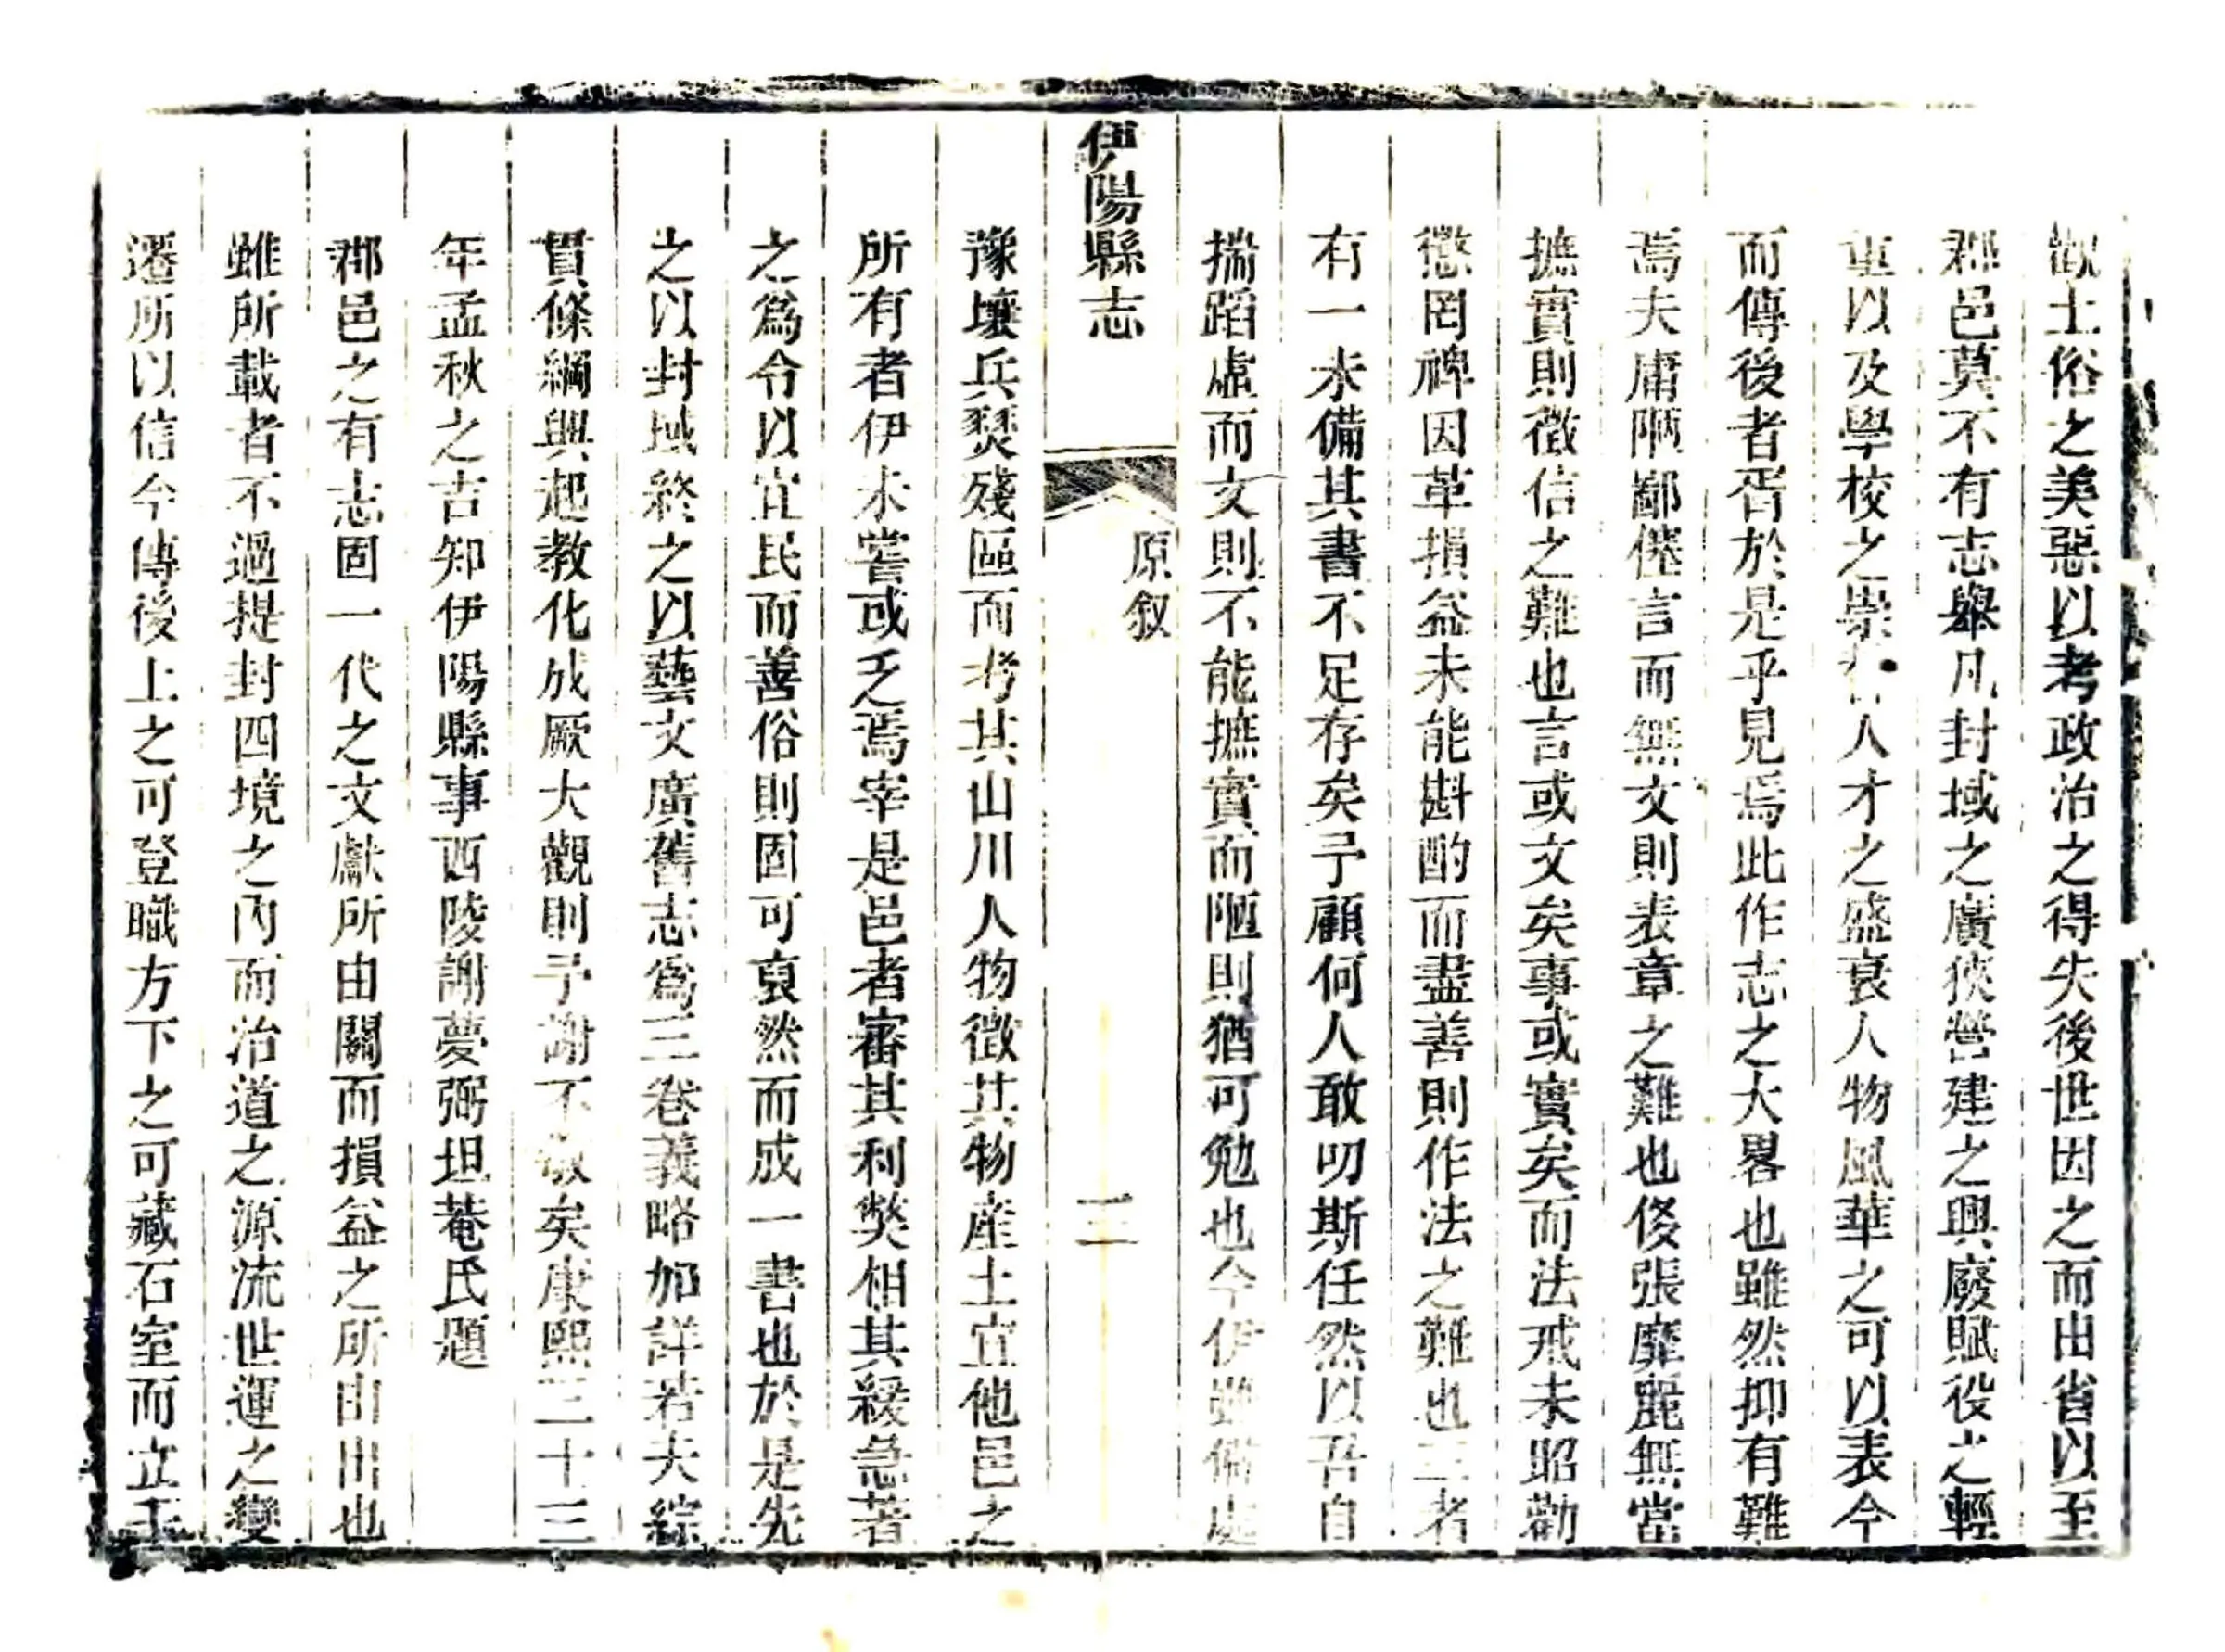 觀土俗之美惡以考政治之得失後世因之而出省以至
郡邑莫不有志舉凡封域之廣狹營建之興廢賦役之輕
重以及學校之崇人才之盛衰人物風華之可以表今
而傳後者胥於是乎見焉此作志之大畧也雖然抑有難
焉夫庸陋鄙俚言而無文則表章之難也侈張靡麗無當
摭實則徵信之難也言或文矣事或實矣而法戒未昭勸
懲罔禆因革損益未能斟酌而盡善則作法之難也三者
有一未備其書不足存矣予顧何人敢叨斯任然以吾自
揣蹈虛而文則不能摭實而陋則猶可勉也今伊雖僻處
伊陽縣志
原叙
二
豫壤兵燹殘區而考其山川人物徵其物産土宜他邑之
所有者伊未嘗或乏焉宰是邑者審其利獘相其緩急著
之爲令以宜民而善俗則固可裒然而成一書也於是先
之以封域終之以藝文廣舊志爲三卷義略加詳若夫綜
貫條綱興起教化成厥大觀則予謝不敏矣康熙三十三
年孟秋之吉知伊陽縣事西陵謝夢弼坦菴氏題
郡邑之有志固一代之文獻所由關而損益之所由出也
雖所載者不過提封四境之內而治道之源流世運之變
遷所以信今傳後上之可登職方下之可藏石室而立王